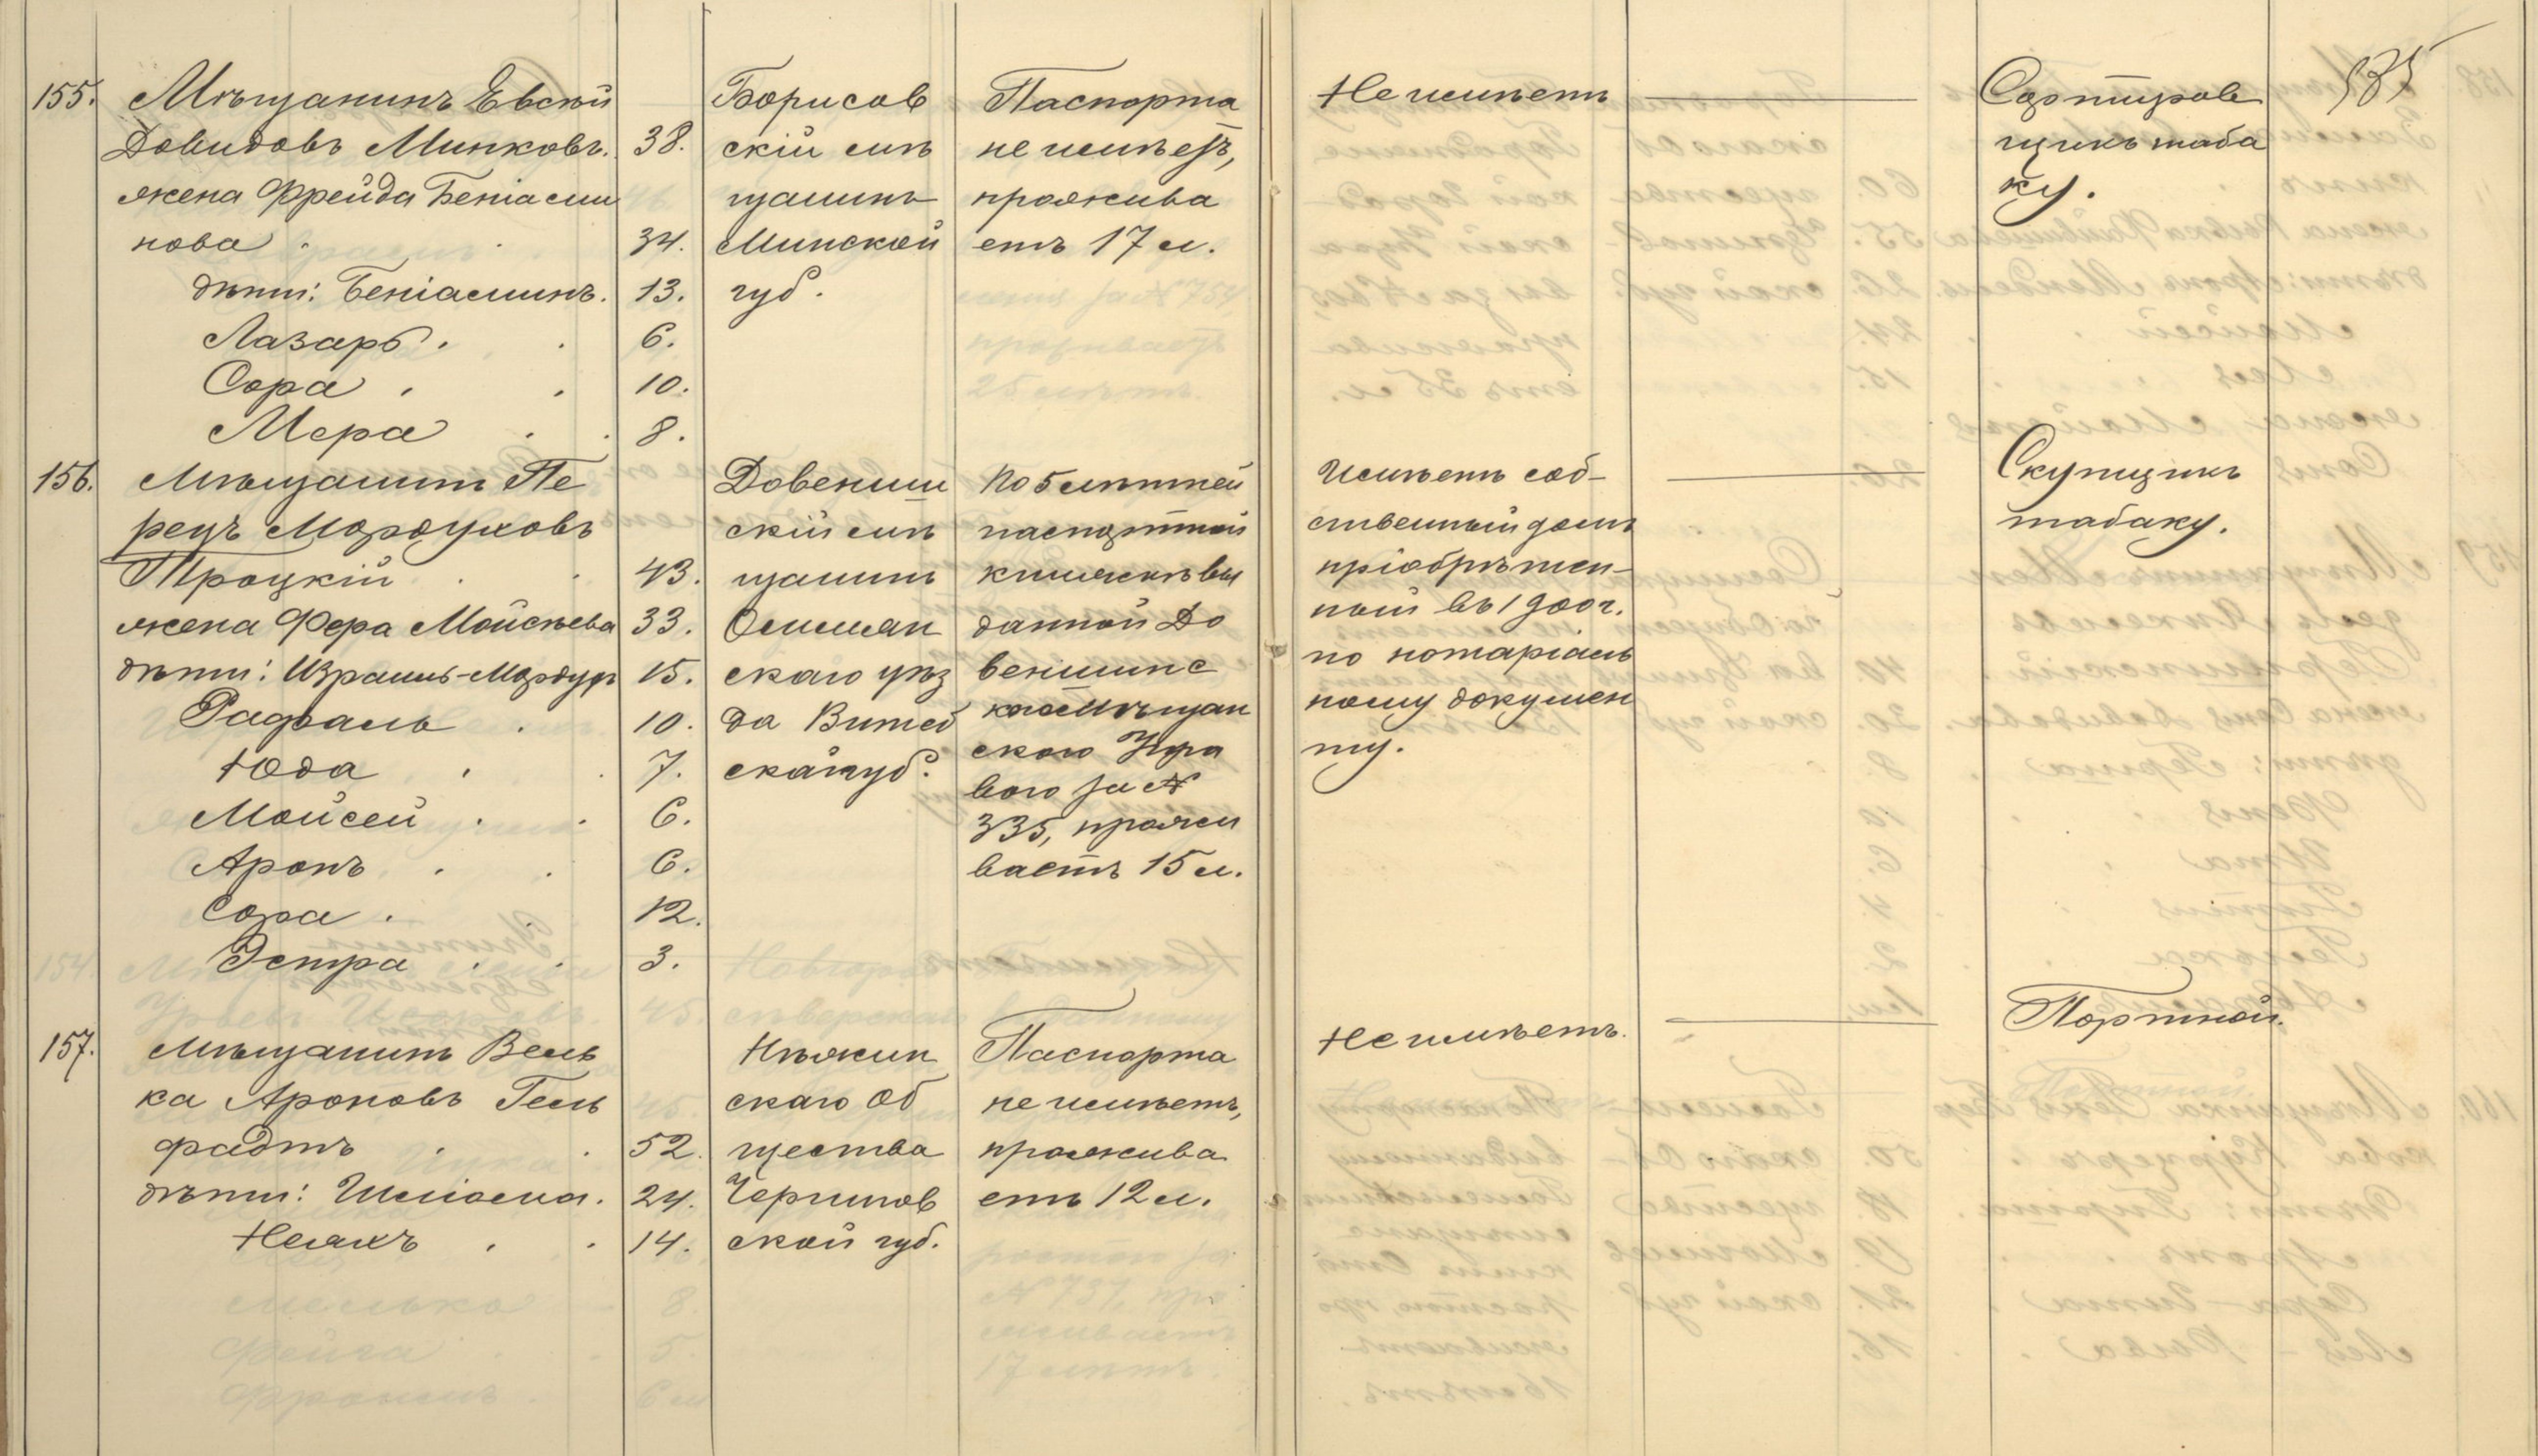 155.
Мѣщанинъ Евсѣй
Довидовъ Минковъ. 38.
жена Фрейда Беніами
нова . . 34.
дѣти: Беніаминъ. 13.
Лазарь . . 6.
Сора . . 10.
Мера . . 8.
Борисов
скій мѣ
щанинъ
Минской
губ.
Паспорта
не имѣетъ,
прожива
етъ 17 л.
Не имѣетъ
Сортиров
щикъ таба
ку.
535
156.
Мѣщанинъ Пе
рецъ Мордуховъ
Троцкій . . 43.
жена Фера Мойсѣева 33.
дѣти: Израиль-Мордухъ 15.
Рафаль . 10.
Юда . . 7.
Мойсей . . 6.
Аронъ . . 6.
Сора . . 12.
Эстра . . 3.
Довениш
скій мѣ
щанинъ
Ошмян
скаго уѣз
да Витеб
ской губ.
По 5 лѣтней
паспортной
книжкѣ вы
данной До
венишис
кой Мѣщан
ского Упра
вою за №
335, прожи
ваетъ 15 л.
Имѣетъ соб-
ственный домъ
пріобрѣтен-
ный въ 1900 г.
по нотаріаль
ному докумен
ту.
Скупщикъ
табаку.
157.
Мѣщанинъ Вель
ка Ароновъ Гель
фадтъ . . 52.
дѣти: Шліома. 24.
Неяхъ . . 14.
Нѣжин
скаго Об
щества
Чернигов
ской губ.
Паспорта
не имѣетъ,
прожива
етъ 12 л.
Не имѣетъ.
Портной.